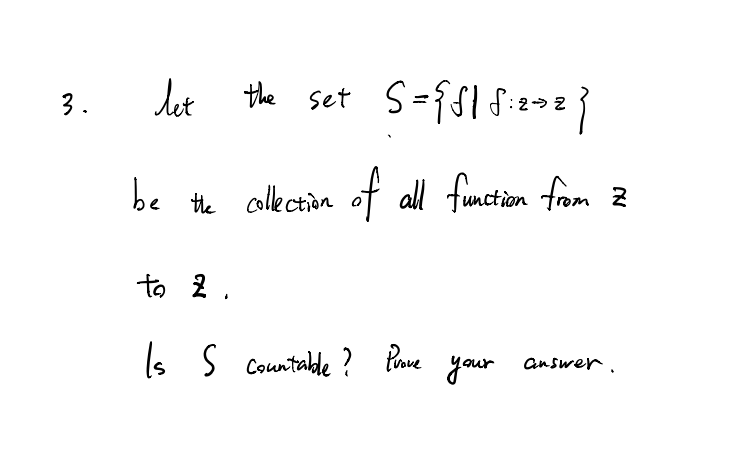 3. let the set S={f| f:z→z}
be the collection of all function from z
to z.
Is S countable? Prove your answer.